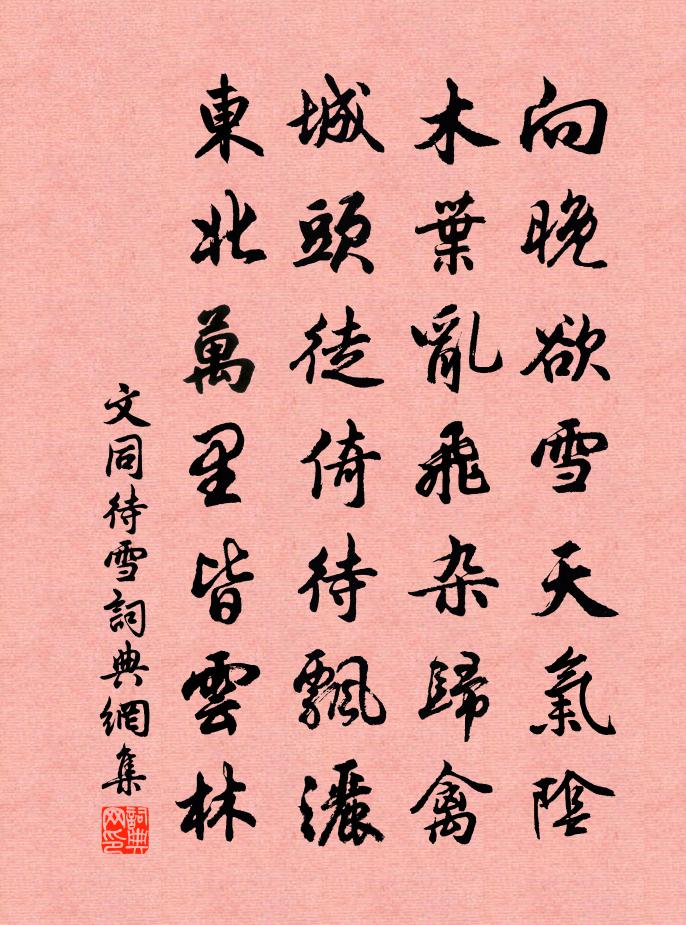 向晚欲雪天氣陰
木葉亂飛杂歸禽
城頭徙倚待飄灑
東北萬里皆雲林
文同待雪詞典網集
詞典网印